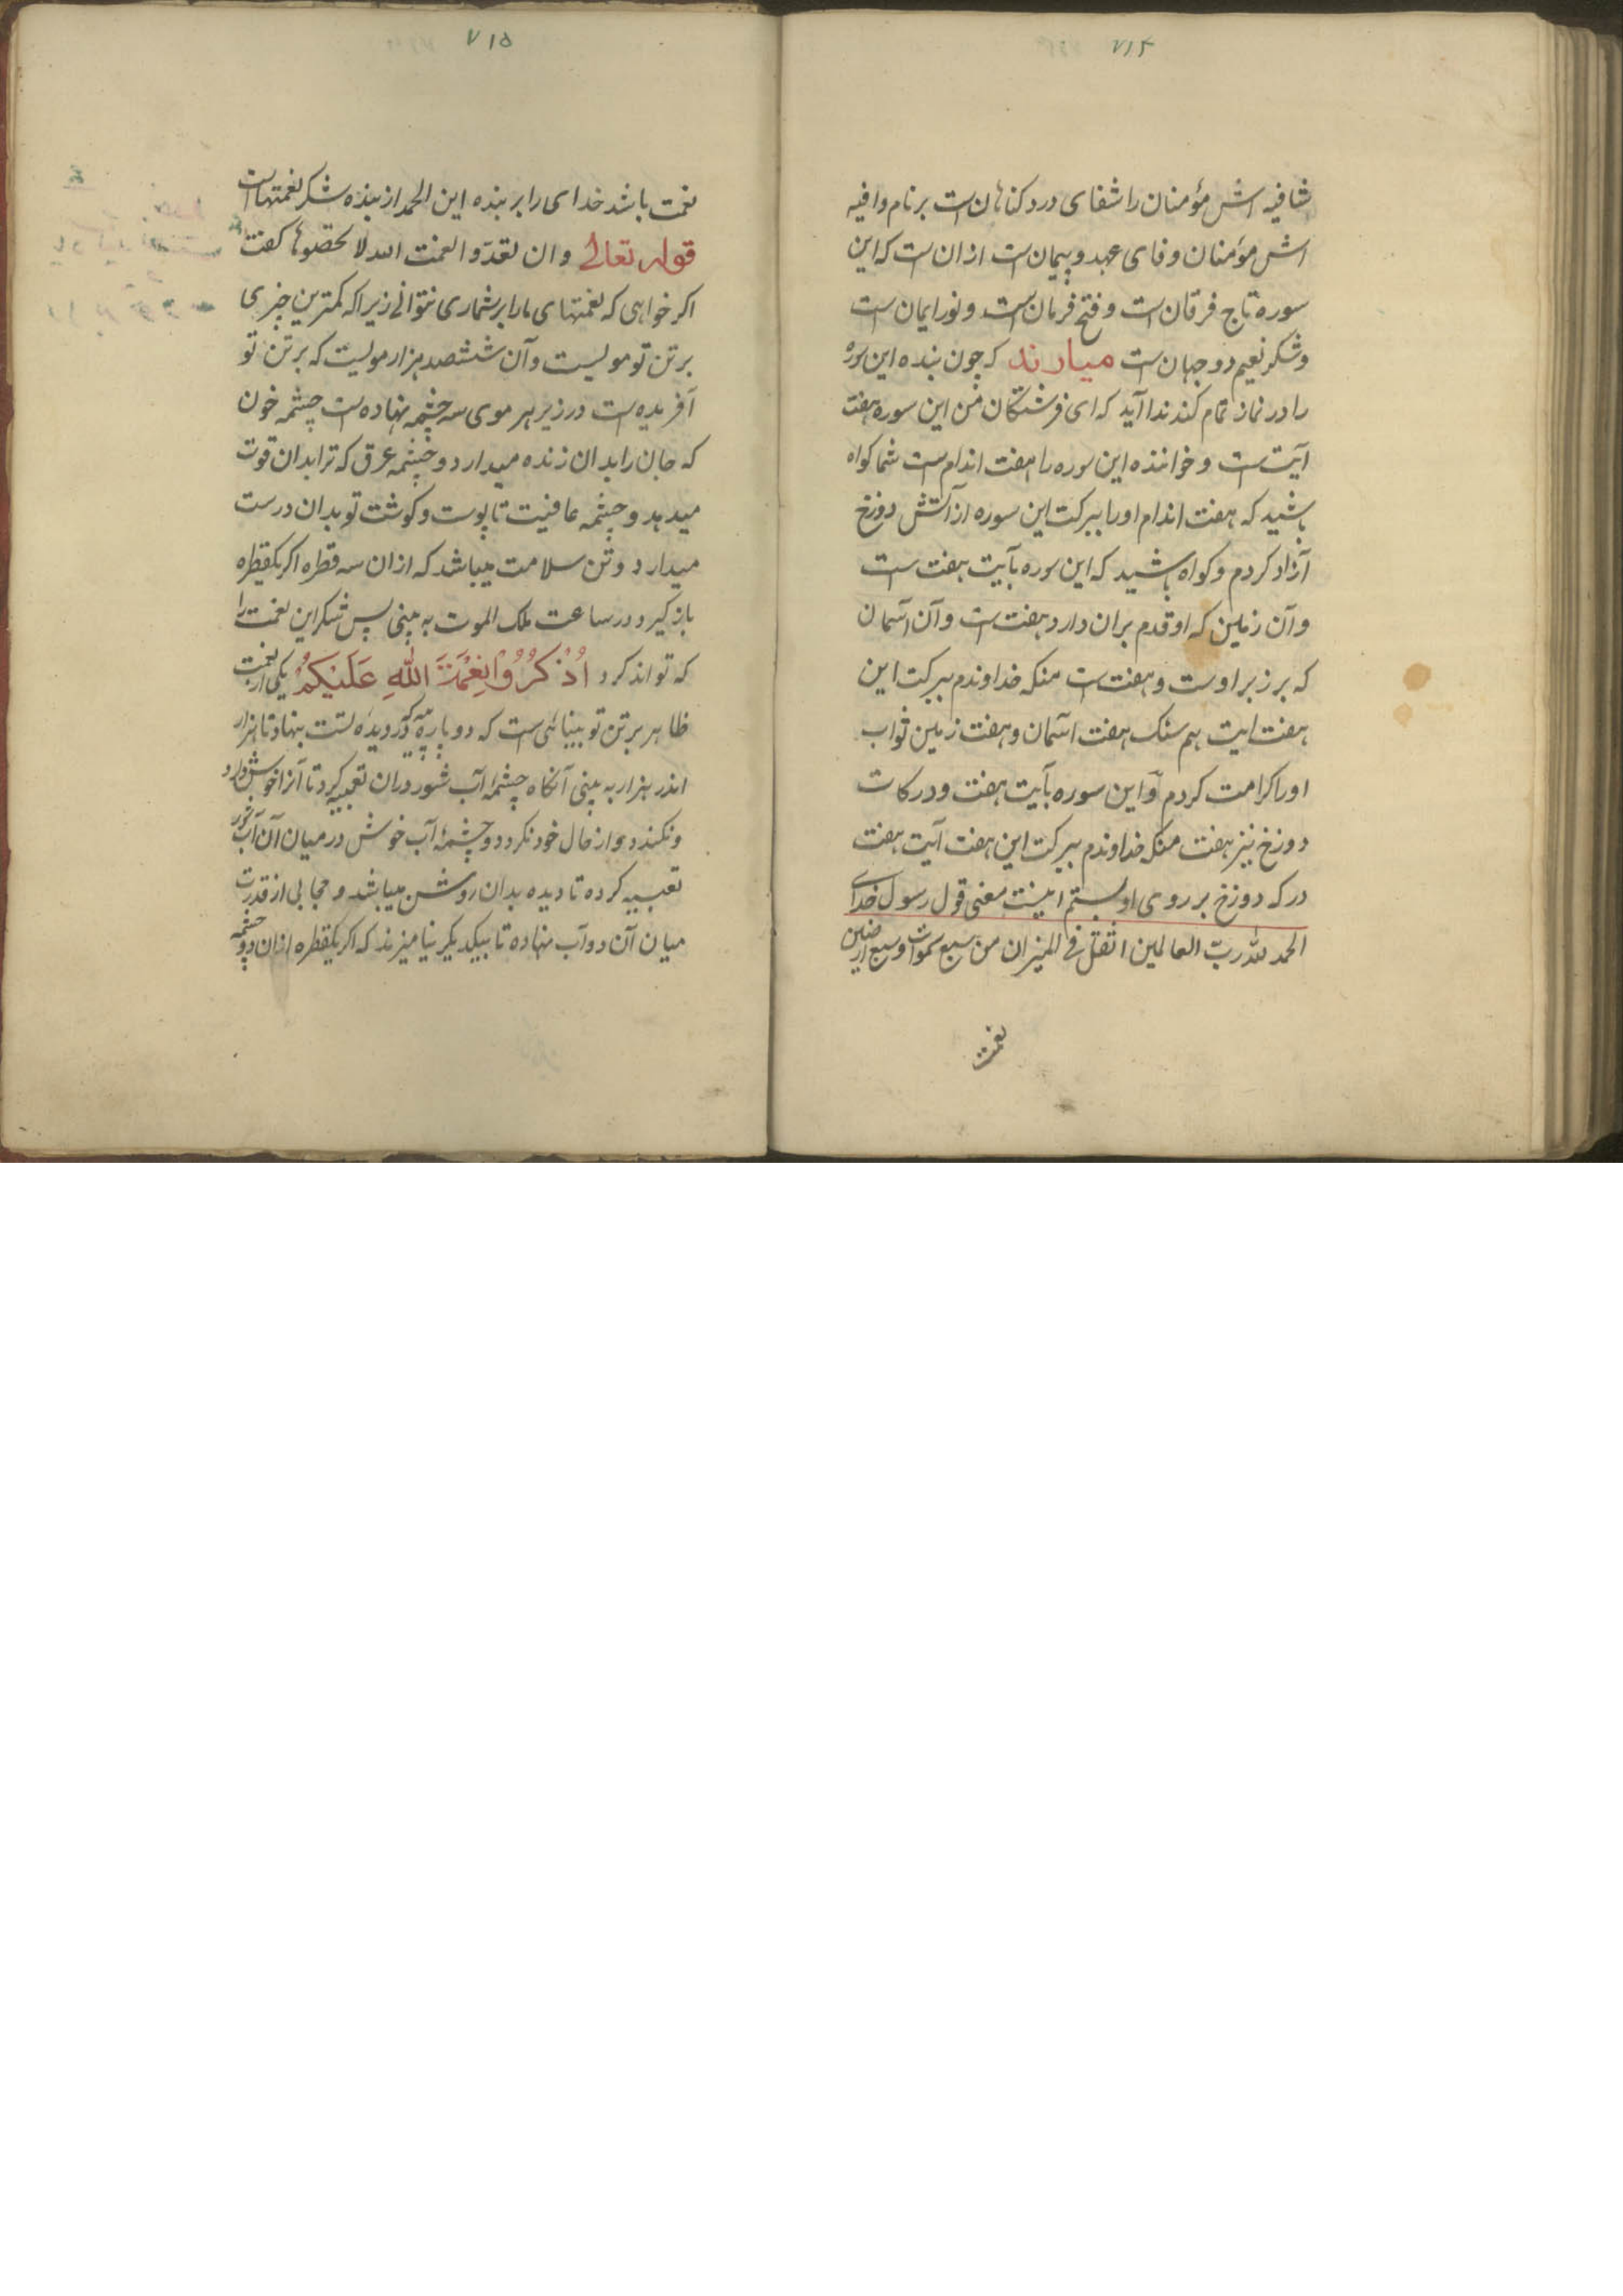 ۷۱۴
شافیه اش مؤمنان را شفای درد کناهان است بر نام وافیه
اش مؤمنان وفای عهد و پیمان است از ان است که این
سوره تاج فرقان است و فتح فرمان است و نور ایمان است
و شکر نعیم دو جهان است میارند که چون بنده این سوره
را در نماز تمام کند ندا آید که ای فرشتکان من این سوره هفت
آیت است و خواننده این سوره را هفت اندام است شما کواه
باشید که هفت اندام او را ببرکت این سوره از آتش دوزخ
آزاد کردم و کواه باشید که این سوره بآیت هفت است
و آن زمین که او قدم بران دارد هفت است و آن آسمان
که بر زبر اوست و هفت است منکه خداوندم ببرکت این
هفت ایت هم سنک هفت اسمان و هفت زمین ثواب
او را کرامت کردم و این سوره بآیت هفت و درکات
دوزخ نیز هفت منکه خداوندم ببرکت این هفت آیت هفت
درکه دوزخ بر روی او ببستم اینست معنی قول رسول خدای
الحمد لله ربّ العالمین اثقل فی المیزان من سبع سموات و سبع ارضین
نعمت
۷۱۵
نعمت باشد خدای را بر بنده این الحمد از بنده شکر نعمتهاست
قوله تعالی و ان تعدّوا نعمت الله لا تحصوها کفت
اکر خواهی که نعمتهای ما را بر شماری نتوانی زیرا که کمترین چیزی
بر تن تو مویست و آن ششصد هزار مویست که بر تن تو
آفریده است در زیر هر موی سه چشمه نهاده است چشمه خون
که جان را بدان زنده میدارد و چشمه عرق که ترا بدان قوت
میدهد و چشمه عافیت تا پوست و کوشت تو بدان درست
میدارد و تن سلامت میباشد که از ان سه قطره اکر یکقطره
باز کیرد در ساعت ملک الموت به بینی پس شکر این نعمت را
که تواند کرد اُذْكُرُوْا نِعْمَةَ اللهِ عَلَيْكُمْ یکی از نعمت
ظاهر بر تن تو بینائی است که دو پاره پیه در دیده تست بنهاد تا هزار
اندر هزار به بینی آنکاه چشمهٔ آب شور دران تعبیه کرد تا آنرا خوش دارد
و نکندد و از حال خود نکردد و چشمهٔ آب خوش در میان آن آب شور
تعبیه کرده تا دیده بدان روشن میباشد و حجابی از قدرت
میان آن دو آب نهاده تا بیکدیکر نیامیزند که اکر یکقطره از ان دو چشمه